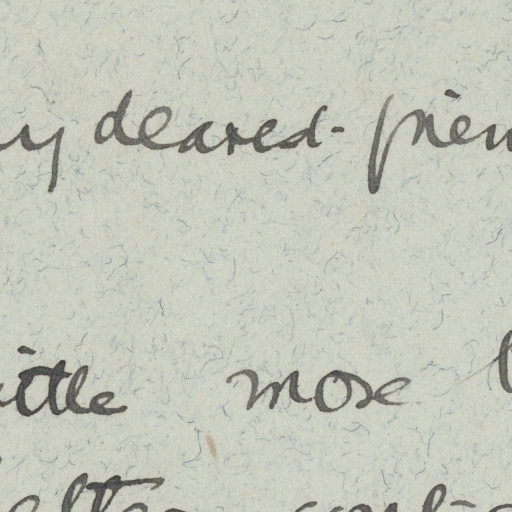 my dearest friend
little more